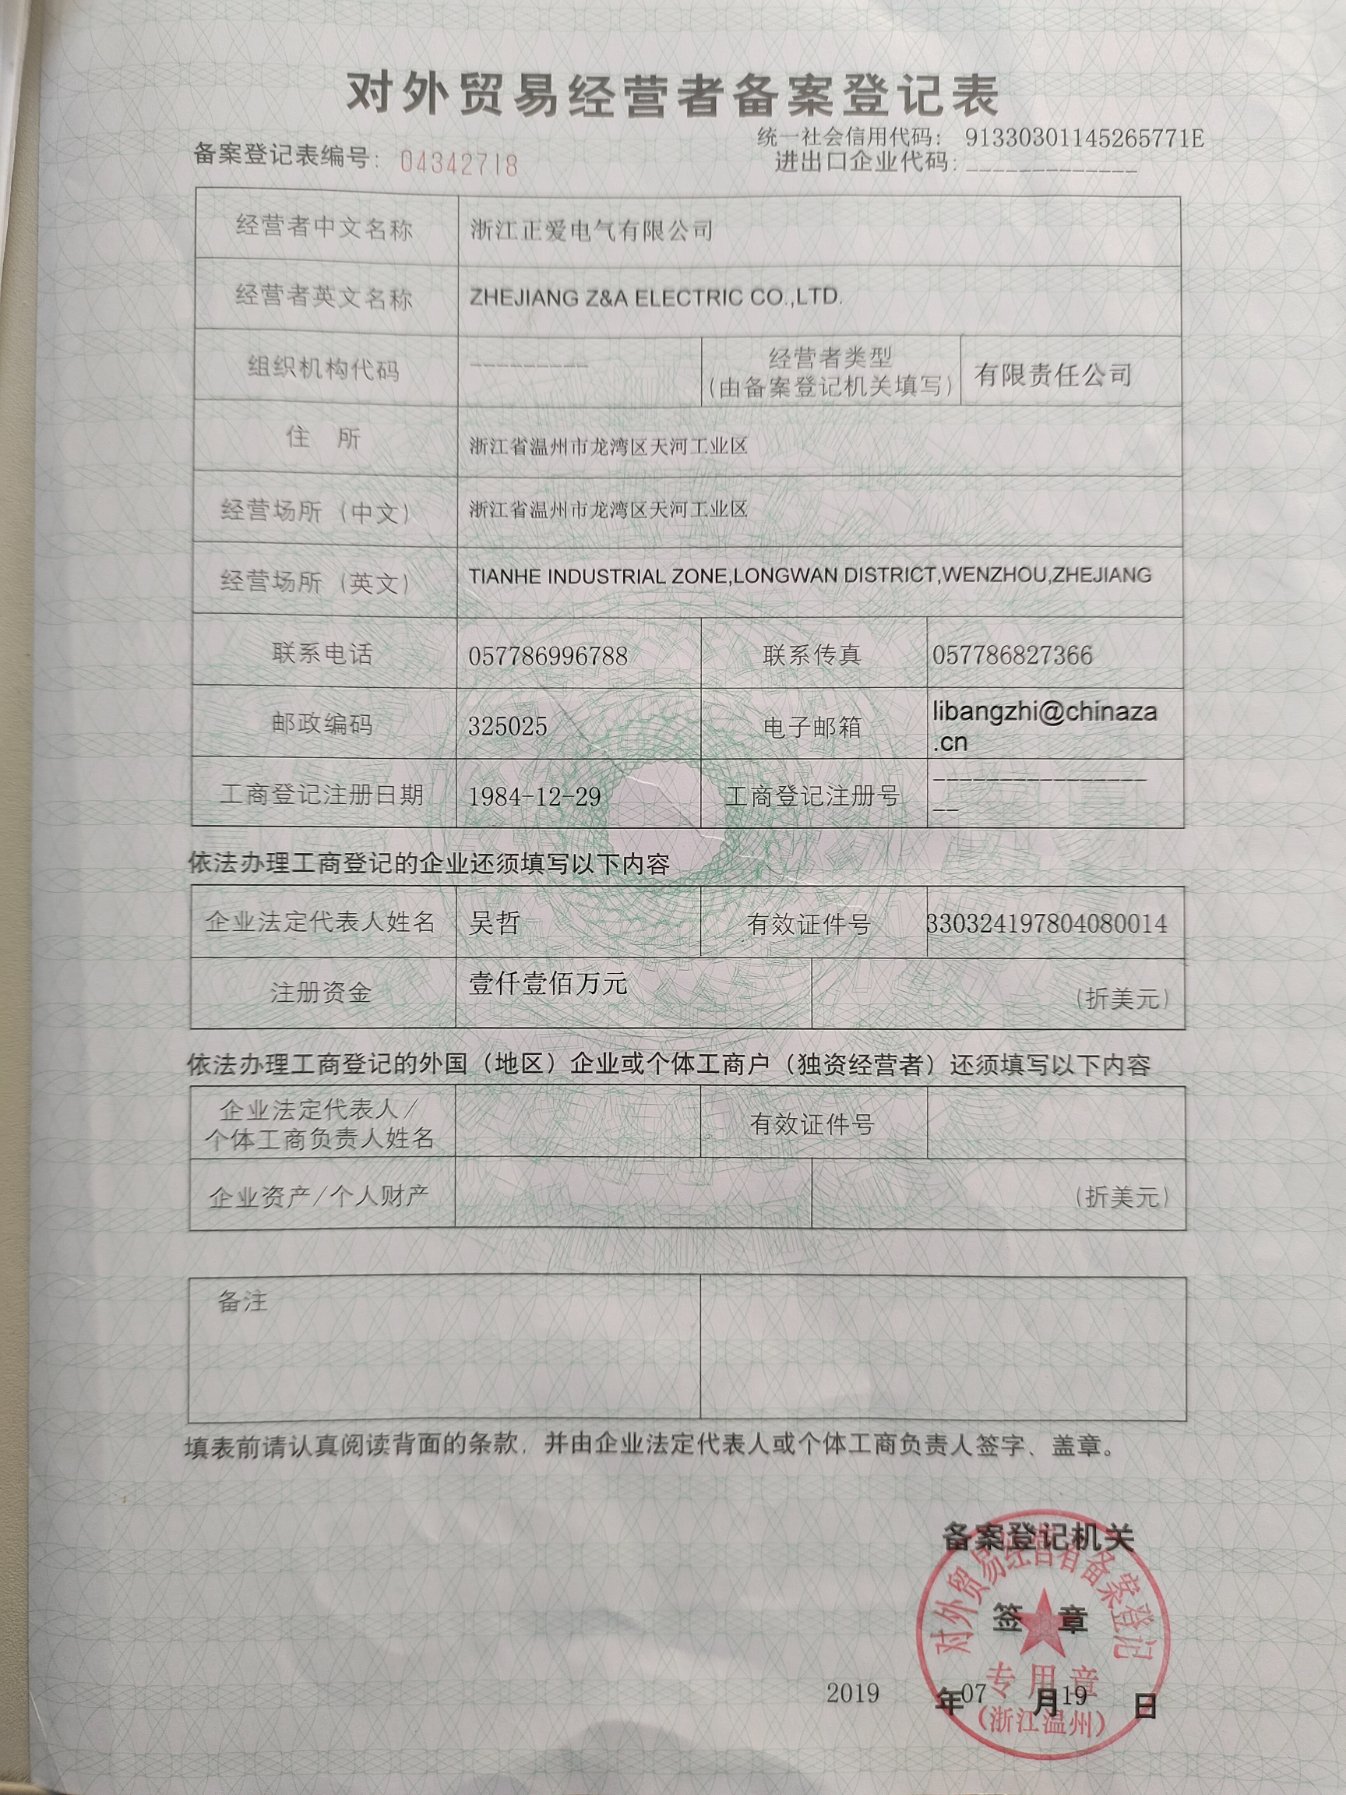 对外贸易经营者备案登记表
统一社会信用代码： 91330301145265771E
备案登记表编号：04342718
进出口企业代码：_____________
经营者中文名称 浙江正爱电气有限公司
经营者英文名称 ZHEJIANG Z&A ELECTRIC CO.,LTD.
组织机构代码 ---------
经营者类型
(由备案登记机关填写) 有限责任公司
住 所 浙江省温州市龙湾区天河工业区
经营场所（中文） 浙江省温州市龙湾区天河工业区
经营场所（英文） TIANHE INDUSTRIAL ZONE,LONGWAN DISTRICT,WENZHOU,ZHEJIANG
联系电话 057786996788 联系传真 057786827366
邮政编码 325025 电子邮箱 libangzhi@chinaza
.cn
工商登记注册日期 1984-12-29 工商登记注册号 ----------------
--
依法办理工商登记的企业还须填写以下内容
企业法定代表人姓名 吴哲 有效证件号 330324197804080014
注册资金 壹仟壹佰万元 (折美元)
依法办理工商登记的外国（地区）企业或个体工商户（独资经营者）还须填写以下内容
企业法定代表人/
个体工商负责人姓名 有效证件号
企业资产/个人财产 (折美元)
备注
填表前请认真阅读背面的条款，并由企业法定代表人或个体工商负责人签字、盖章。
备案登记机关
签 章
2019 年07 月19 日
对外贸易经营者备案登记
专用章
(浙江温州)